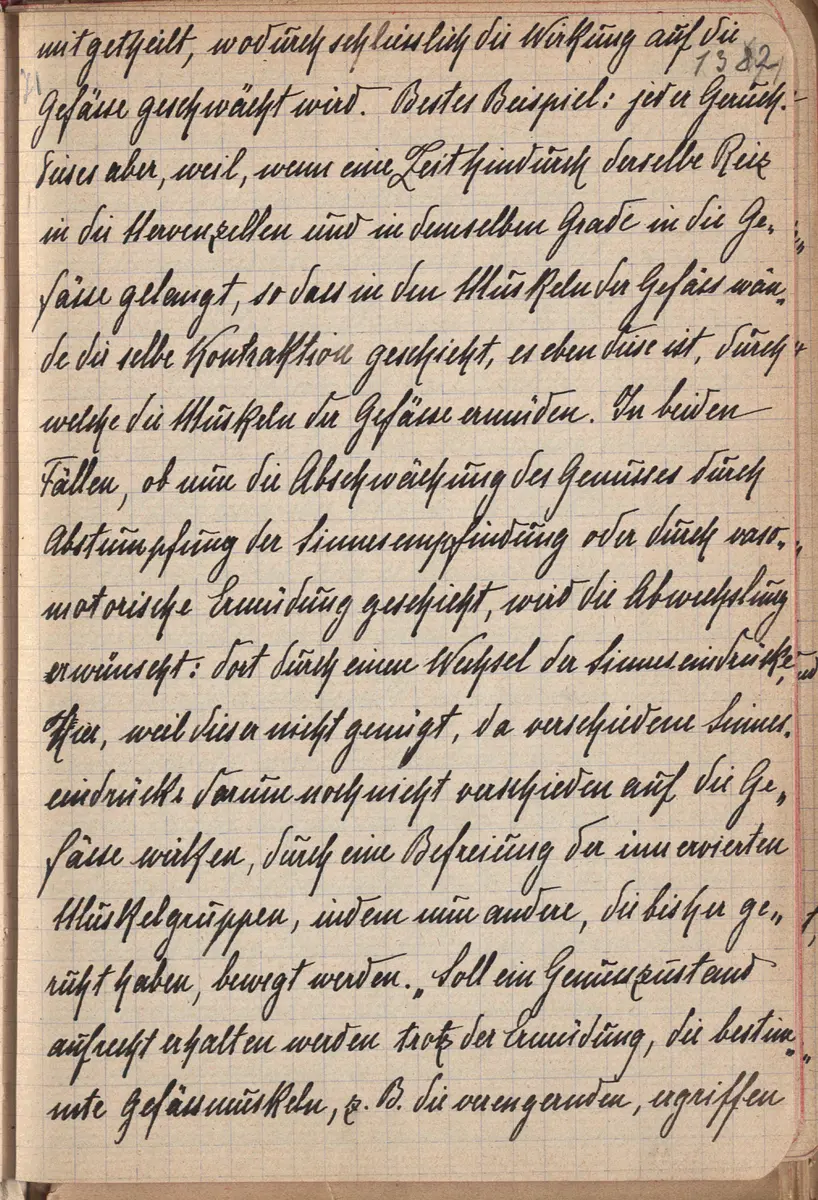 mitgetheilt, wodurch schliesslich die Wirkung auf die
1382
71
Gefässe geschwächt wird. Bestes Beispiel: jeder Geruch.
Dieses aber, weil, wenn eine Zeit hindurch derselbe Reiz
in die Nervenzellen und in demselben Grade in die Ge„
fässe gelangt, so dass in den Muskeln der Gefässwän„
de die selbe Kontraktion geschieht, es eben diese ist, durch
welche die Muskeln der Gefässe ermüden. In beiden
Fällen, ob nun die Abschwächung des Genusses durch
Abstumpfung der Sinnesempfindung oder durch vaso„
motorische Ermüdung geschieht, wird die Abwechslung
erwünscht: dort durch einen Wechsel der Sinneseindrücke,
Hier, weil dieser nicht genügt, da verschiedene Sinnes„
eindrücke darum noch nicht verschieden auf die Ge„
fässe wirken, durch eine Befreiung der innervierten
Muskelgruppen, indem nun andere, die bisher ge„
ruht haben, bewegt werden. „Soll ein Genusszustand
aufrecht erhalten werden trotz der Ermüdung, die bestim„
mte Gefässmuskeln, z. B. die verengernden, ergriffen